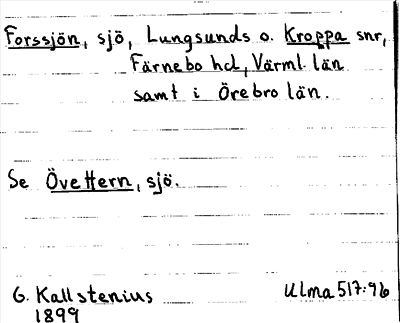 Forssjön, sjö, Lungsunds o. Kroppa snr,
Färnebo hd, Värml. län
samt i Örebro län.
Se Övettern, sjö.
G. Kallstenius
1899
Ulma 517:96